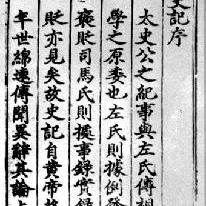 史記序
太史公之紀事與左氏傳相
學之原委也左氏則據例發
褒貶司馬氏則據事錄實錄
貶亦見矣故史記自黃帝
年世綿遠傳聞異辭其論